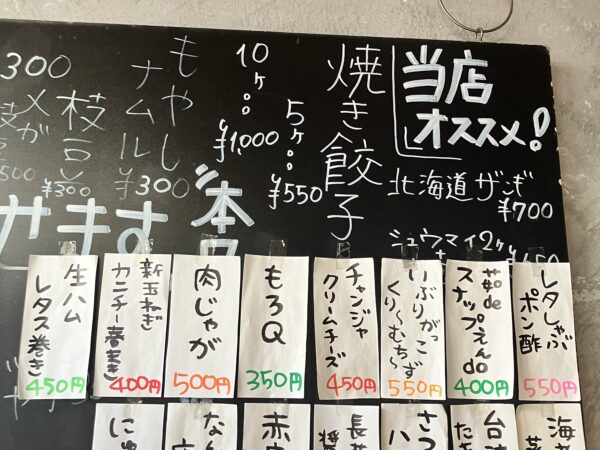 当店
オススメ!
北海道ザンギ
¥700
ジュウマイ2ケ
焼き餃子
5ケ...
¥550
10ケ...
¥1,000
もやし
ナムル
¥300
枝豆
¥300
300
500
せます
レタしゃぶ
ポン酢
550円
茹de
スナップえんdo
400円
いぶりがっこ
くり〜むち〜ず
550円
チャンジャ
クリームチーズ
450円
もろQ
350円
肉じゃが
500円
新玉ねぎ
カニチー春まき
400円
生ハム
レタス巻き
450円
海
台湾
たき
さつ
ハ
長芋
赤
なん
にゅ